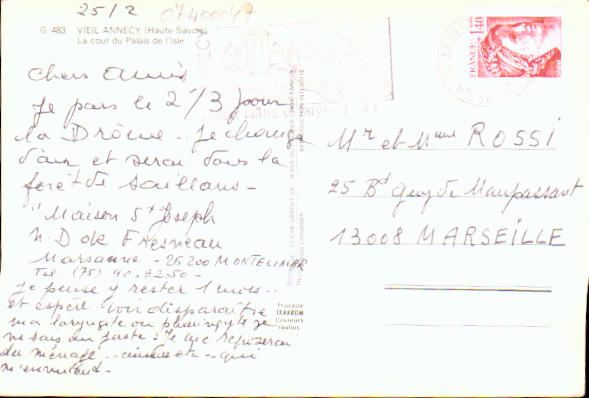 25/2
07400047
G 483 VIEIL ANNECY (Haute-Savoie)
La cour du Palais de l'Isle
FRANCE 1,40
chers amis
Je pars le 2/3 pour
la Drôme -- Je change
d'air et serai dans la
forêt de Saillans -
"Maison St Joseph
N. D de Fresneau
Marsanne - 26200 MONTELIMAR
Tel. (75) 90.32.50 -
Je pense y rester 1 mois --
et espère voir disparaître
ma laryngite ou pharyngite je
ne sais au juste : Je me reposerai
du ménage -- cuisine etc -- qui
m'ennuient -
Mr et Mme ROSSI
25 Bd Guy de Maupassant
13008 MARSEILLE
Procédé
IXAKROM
Couleurs
réelles